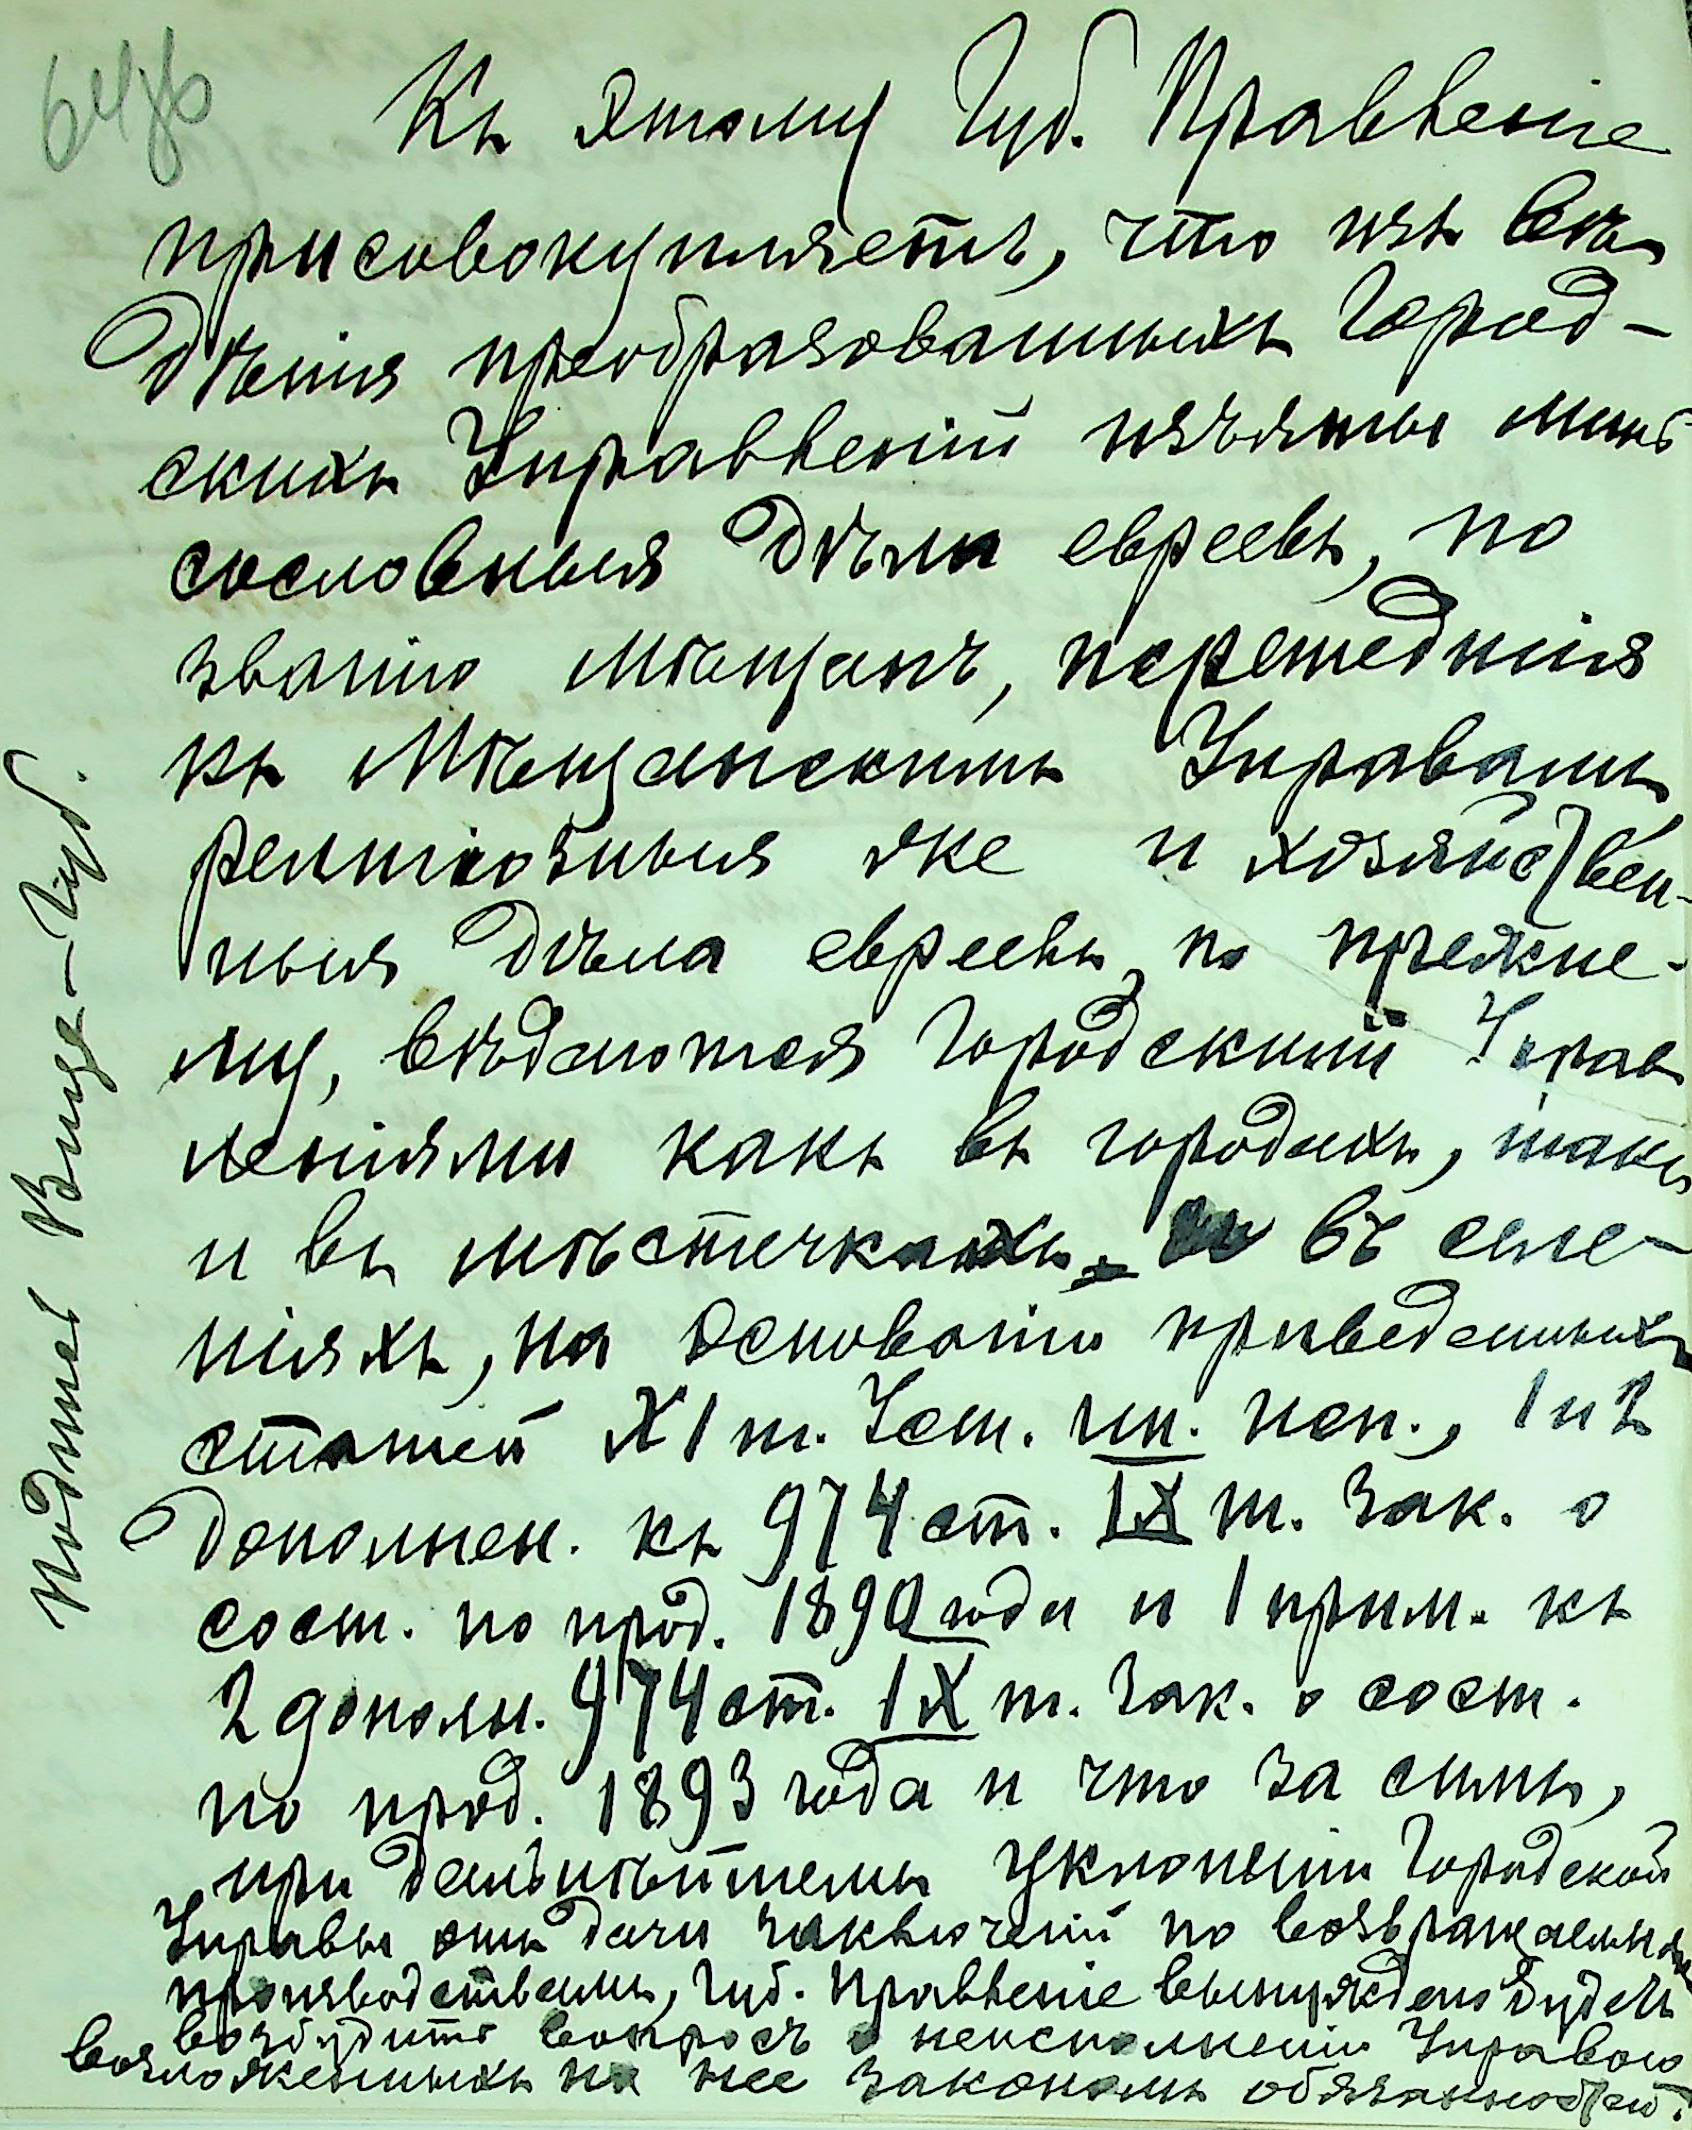 64об
Къ этому Губ. Правленіе
присовокупляетъ, что изъ вѣ-
дѣнія преобразованныхъ Город-
скихъ Управленій изъяты лишь
сословныя дѣла евреевъ, по
званію мѣщанъ, перешедшія
къ Мѣщанскимъ Управамъ,
религіозныя же и хозяйствен-
ныя дѣла евреевъ, по прежне-
му, вѣдаются Городскими Управ
леніями какъ въ городахъ, такъ
и въ мѣстечкахъ въ селе-
ніяхъ, на основаніи приведенныхъ
статей XI т. Уст. ин. исп., 1 и 2
дополнен. къ 974 ст. IX т. Зак. о
сост. по прод. 1890 года и 1 прим. къ
2 дополн. 974 ст. IX т. Зак. о сост.
по прод. 1893 года и что за симъ,
при дальнѣйшемъ уклоненіи Городской
Управы отъ дачи заключеній по возвращаемымъ
производствамъ, Губ. Правленіе вынуждено будетъ
возбудить вопросъ о неисполненіи Управою
возложенныхъ на нее закономъ обязанностей.
Подписъ Вице-Губ.